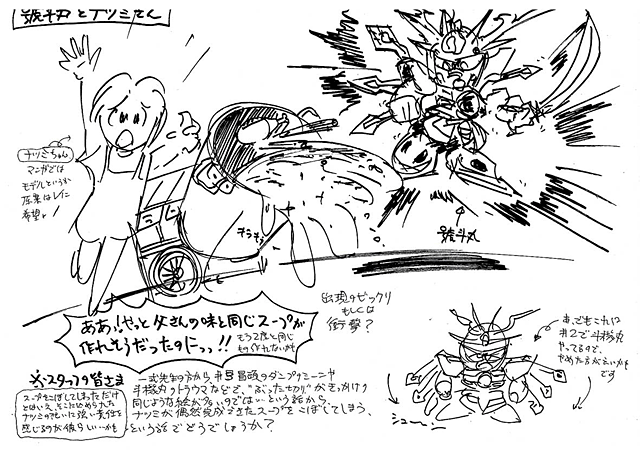 號斗丸とナツミたん
ナツミちゃん
マンガでは
モデルというか
希望!
キラキラ
號斗丸
ああっ!やっと父さんの味と同じスープが
作れそうだったのにっっ!!
もう2度と同じ
もの作れないかも
出現のビックリ
もしくは
衝撃?
スタッフの皆さま
スープをこぼしてしまっただけ
とはいえ、そこに込められた
ナツミの思いを
感じるのが彼らしいかも
斗機丸のトラウマなどで、"ぶったぎり"がきっかけの
同じような絵が多いのではないという話から
ナツミが偶然完成させたスープをこぼしてしまう、
という話でどうでしょうか?
あ、でもこれは
#2で斗機丸
やってるので、
やめた方がいいかも
です
シュー